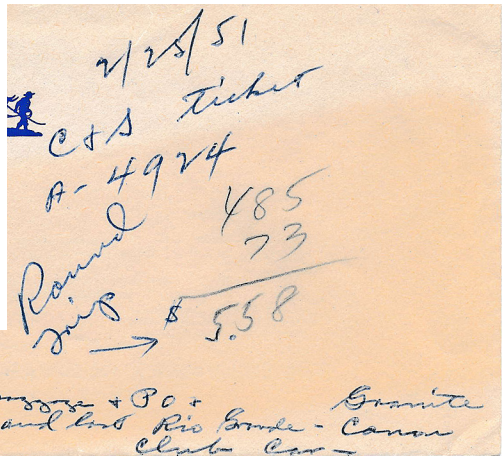 2/25/51
C & S ticket
A-4924
Round
Trip → $
485
73
5.58
& P O & Granite
and lost Rio Grande - Canon
Club Car -